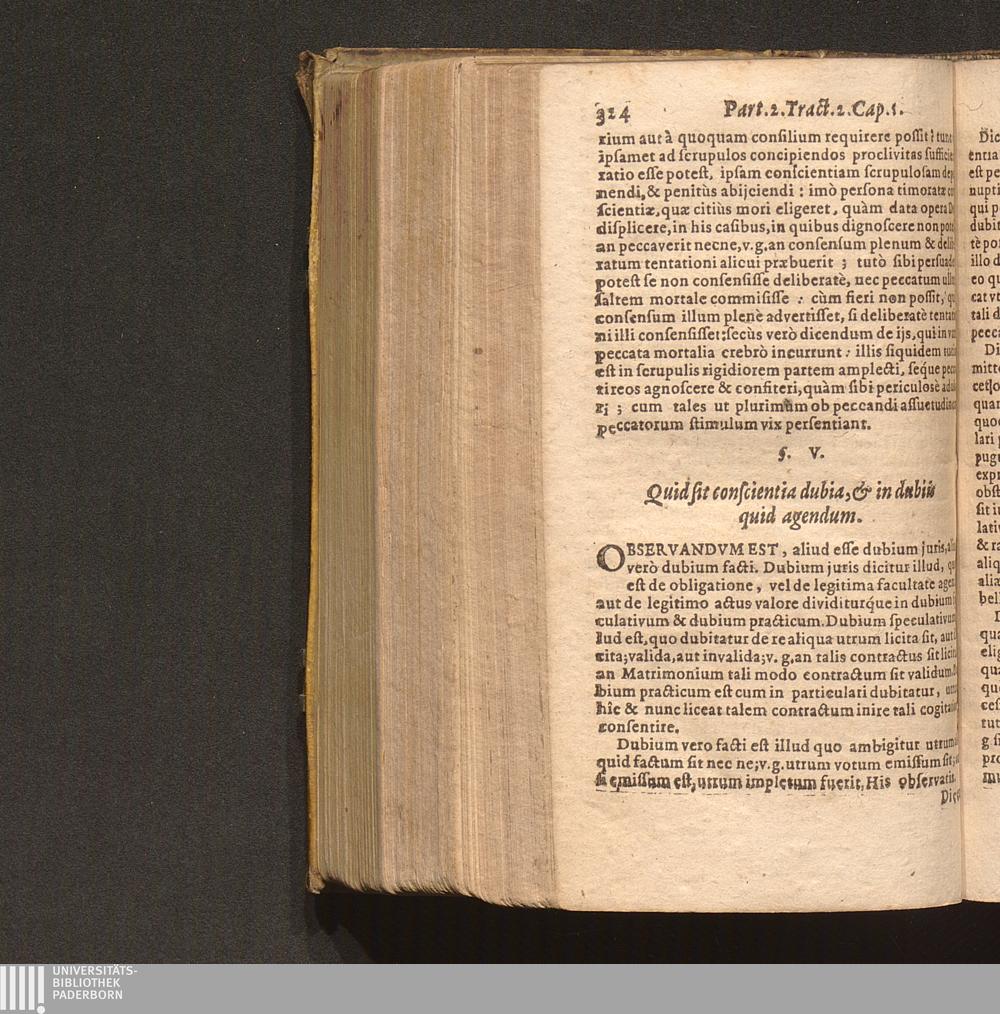 324 Part.2.Tract.2.Cap.1.
rium aut à quoquam consilium requirere possit? tunc
ipsamet ad scrupulos concipiendos proclivitas
ratio esse potest, ipsam conscientiam scrupulosam
nendi, & penitùs abijciendi: imò persona timoratæ
scientiæ, quæ citiùs mori eligeret, quàm data opera
displicere, in his casibus, in quibus dignoscere non
an peccaverit necne, v.g. an consensum plenum &
ratum tentationi alicui præbuerit; tutò sibi
potest se non consensisse deliberatè, nec peccatum
saltem mortale commisisse: cùm fieri non possit,
consensum illum plenè advertisset, si deliberatè
ni illi consensisset: secùs verò dicendum de ijs, qui in
peccata mortalia crebrò incurrunt: illis siquidem
est in scrupulis rigidiorem partem amplecti, seque
tireos agnoscere & confiteri, quàm sibi periculosè
ri; cum tales ut plurimùm ob peccandi
peccatorum stimulum vix persentiant.
§. V.
Quid sit conscientia dubia, & in dubiis
quid agendum.
OBSERVANDVM EST, aliud esse dubium juris,
verò dubium facti. Dubium juris dicitur illud,
est de obligatione, vel de legitima facultate
aut de legitimo actus valore dividiturq́ue in dubium
culativum & dubium practicum. Dubium
lud est, quo dubitatur de re aliqua utrum licita sit,
cita; valida, aut invalida; v.g. an talis contractus sit
an Matrimonium tali modo contractum sit validum.
bium practicum est cum in particulari dubitatur,
hîc & nunc liceat talem contractum inire tali
consentire.
Dubium vero facti est illud quo ambigitur utrum
quid factum sit nec ne; v.g. utrum votum emissum sit;
si emissum est, utrum impletum fuerit. His observatis
Dic
entia
est pe
nupti
qui
dubit
tè
illo d
eo
cat vt
tali d
pecca
Di
mitt
quan
quo
lari
pug
expr
obst
sit
lati
& ra
aliq
aliæ
bell
qua
elig
qu
ces
tut
g si
pro
UNIVERSITÄTS-
BIBLIOTHEK
PADERBORN